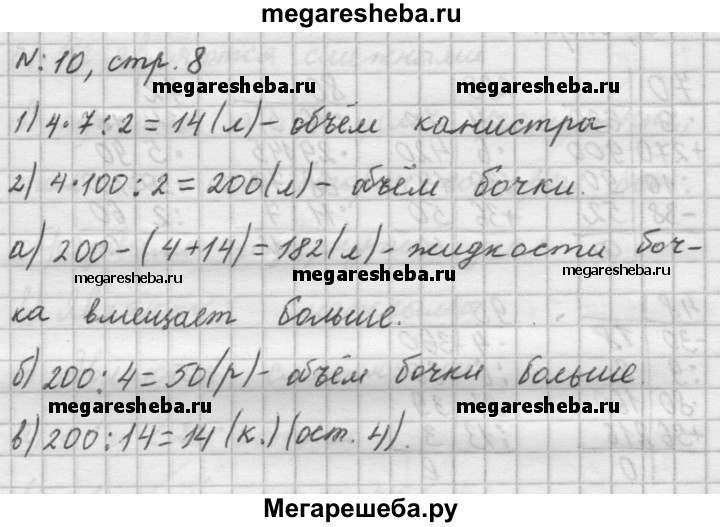 megaresheba.ru
№: 10, стр. 8
megaresheba.ru megaresheba.ru
1) 4·7:2=14(л)- объём канистры
2) 4·100:2=200(л)- объём бочки.
а) 200-(4+14)=182(л)- жидкости боч-
megaresheba.ru megaresheba.ru
ка вмещает больше.
б) 200:4=50(р)- объём бочки больше.
megaresheba.ru megaresheba.ru
в) 200:14=14 (к.)(ост. 4).
Мегарешеба.ру